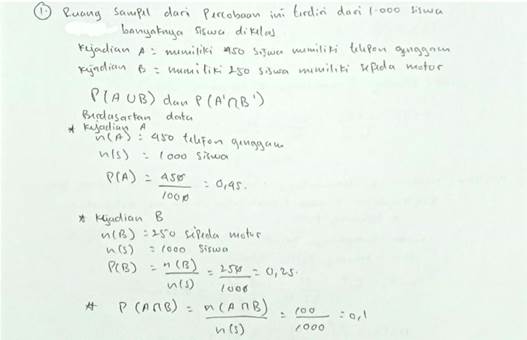 ① Ruang Sampel dari Percobaan ini terdiri dari 1.000 siswa
banyaknya siswa di kelas
Kejadian A = memiliki 450 siswa memiliki telepon genggam
Kejadian B = memiliki 250 siswa memiliki sepeda motor
P(A ∪ B) dan P(A'∩B')
Berdasarkan data
* Kejadian A
n(A) = 450 telefon genggam
n(s) = 1000 siswa
P(A) = 450/1000 = 0,45.
* Kejadian B
n(B) = 250 sepeda motor
n(s) = 1000 siswa
P(B) = n(B)/n(s) = 250/1000 = 0,25.
* P(A∩B) = n(A∩B)/n(s) = 100/1000 = 0,1